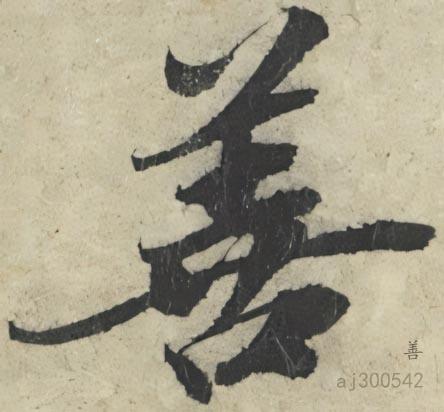 善
善
aj300542